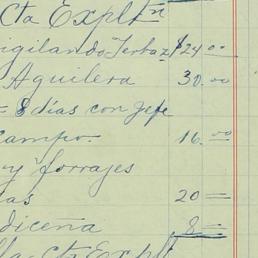 Cta Expltn
igilando Terbaz $24.00
Aguilera 30.00
= 8 dias con Jefe
Campo. 16.00
y forrajes
as 20=
dicena 8=
lla Cta Explt